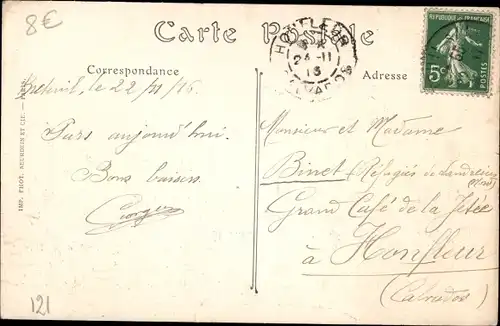 8€
Carte Postale
HONFLEUR
2 - 11
15
CALVADOS
RÉPUBLIQUE FRANÇAISE
5c
POSTES
Correspondance
Adresse
le 22/11/15
Pars aujourd'hui.
Bons baisers
Georges
Monsieur et Madame
Binet (Réfugiés de
Grand Café de la Jetée
à Honfleur
(Calvados)
IMP. PHOT. NEURDEIN ET CIE. - PARIS
121